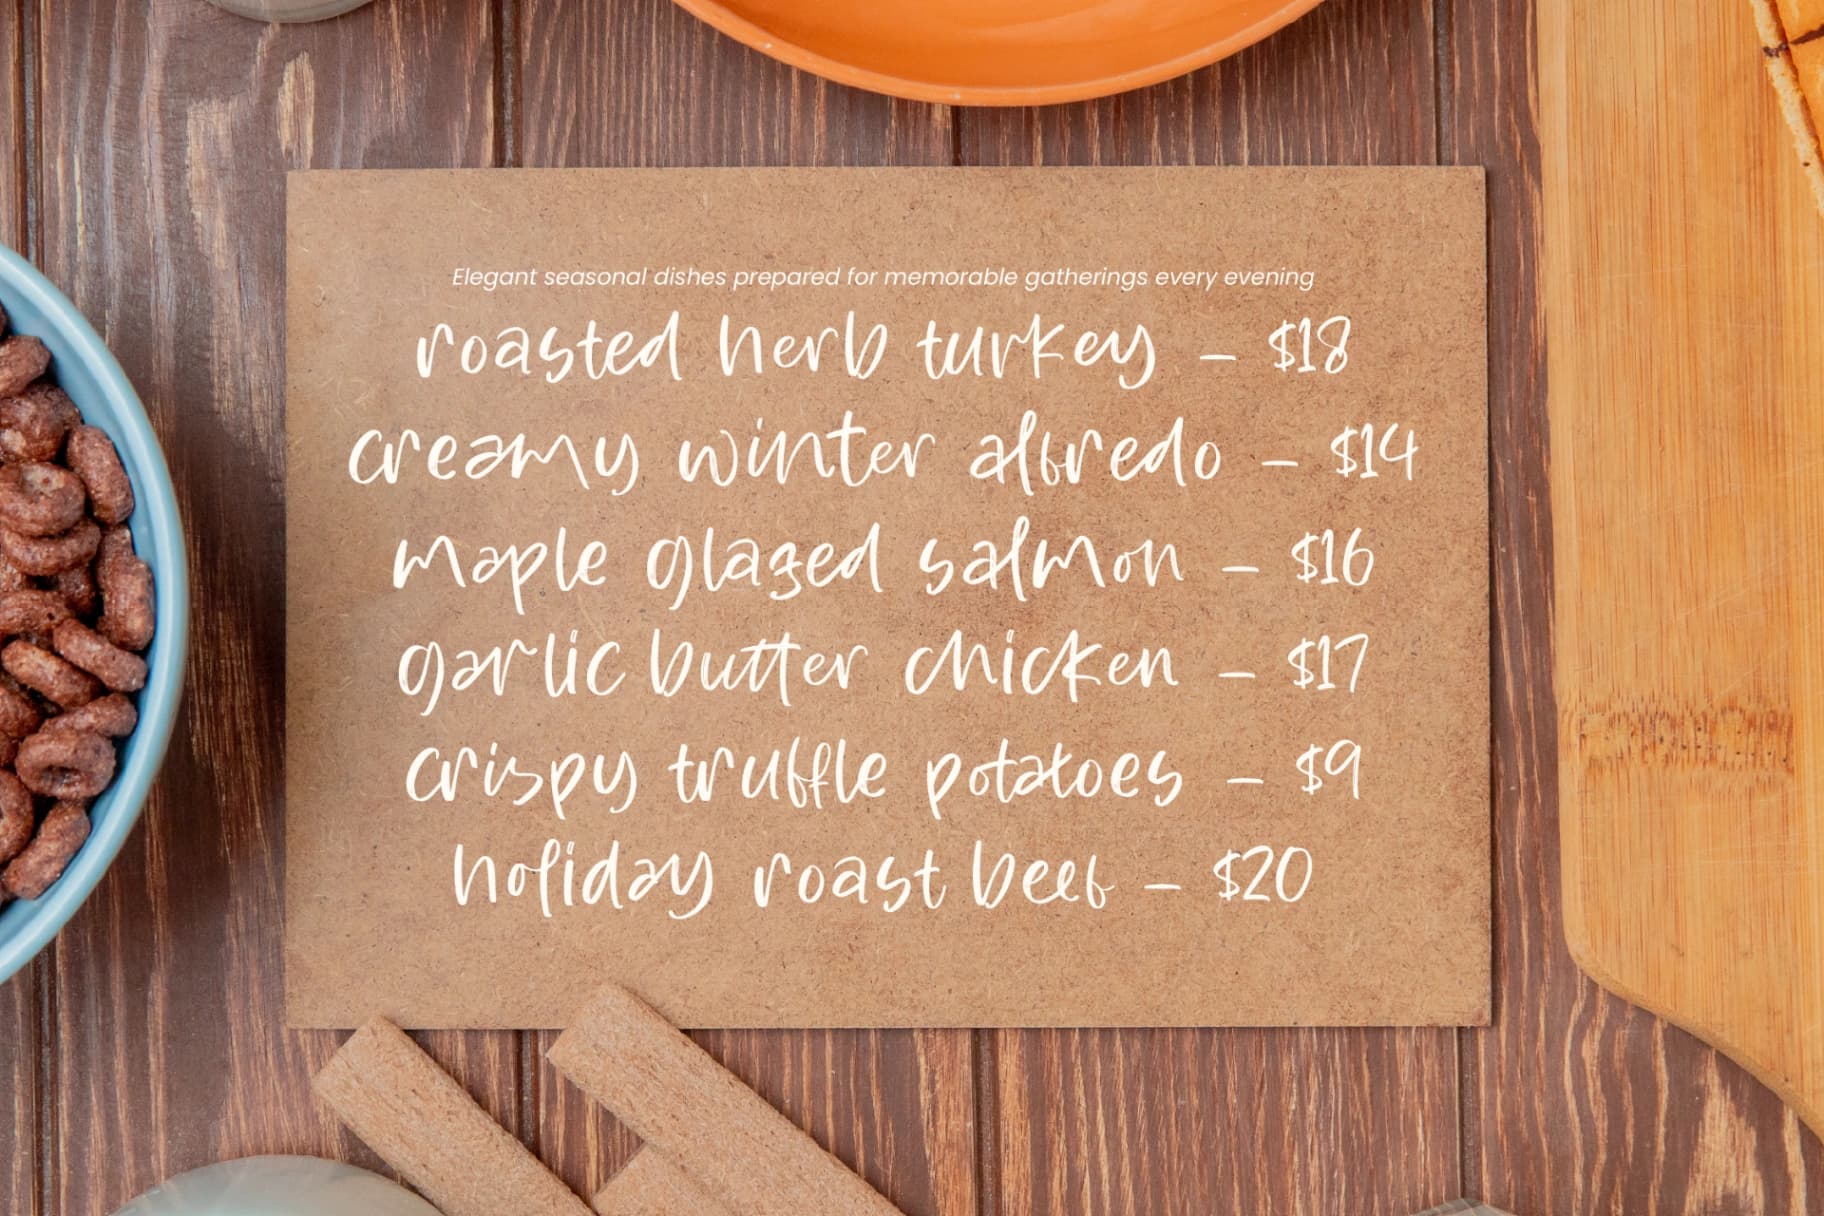 Elegant seasonal dishes prepared for memorable gatherings every evening
roasted herb turkey – $18
creamy winter alfredo – $14
maple glazed salmon – $16
garlic butter chicken – $17
crispy truffle potatoes – $9
holiday roast beef – $20